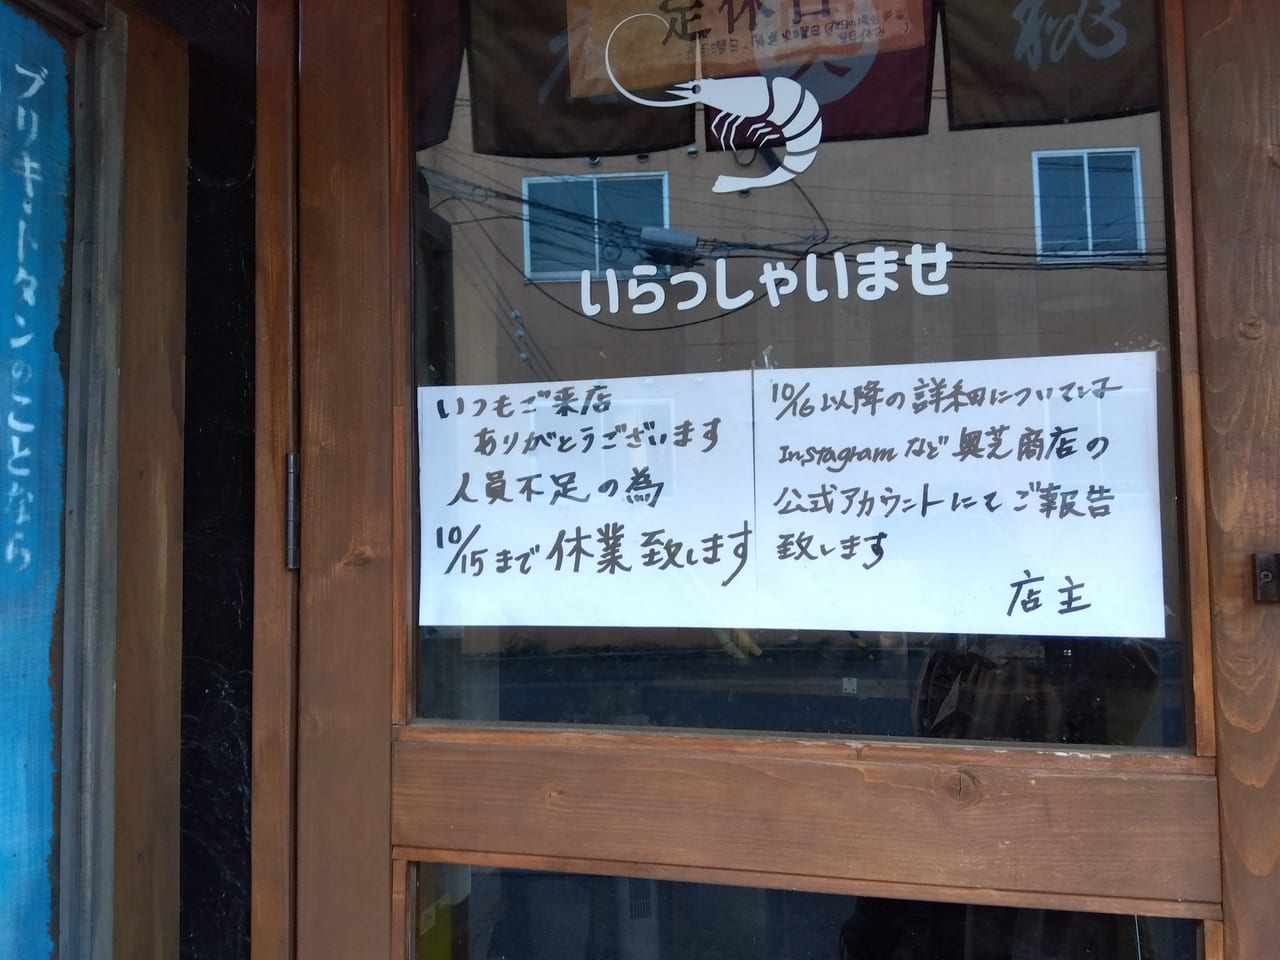 定休日
いらっしゃいませ
いつもご来店
ありがとうございます
人員不足の為
10/15まで休業致します
10/16以降の詳細については
Instagramなど奥芝商店の
公式アカウントにてご報告
致します
店主
ブリキ・トタンのことなら